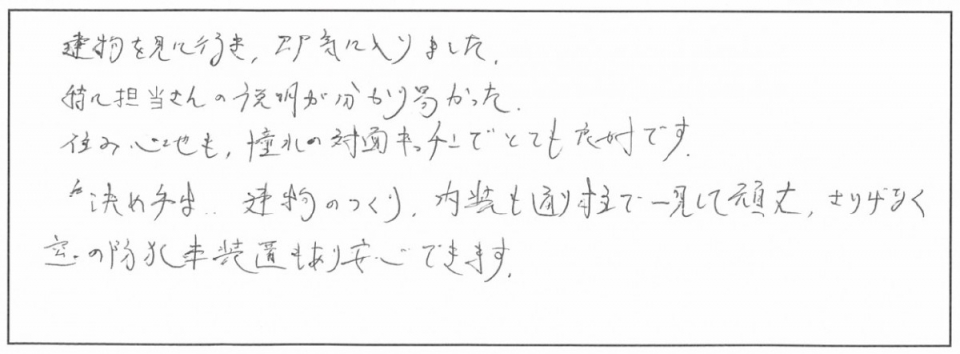 建物を見に行き、即気に入りました。
特に担当さんの説明が分かり易かった。
住み心地も、憧れの対面キッチンでとても良好です。
決め手は‥ 建物のつくり、内装も通り柱で一見して頑丈、さりげなく
窓の防犯装置もあり安心できます。